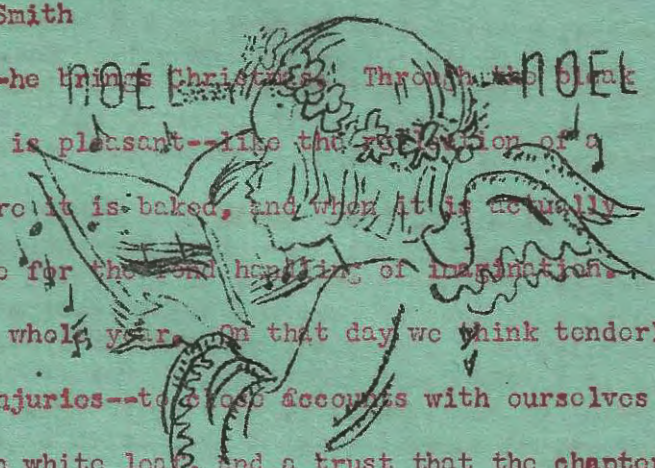 Smith
NOEL NOEL
--he brings Christmas. Through the bleak
is pleasant--like the of a
it is baked, and when it is actually
for the fond handling of imagination.
whole year. On that day we think tenderl
njuries--to close accounts with ourselves
white leaf, and a trust that the chapter